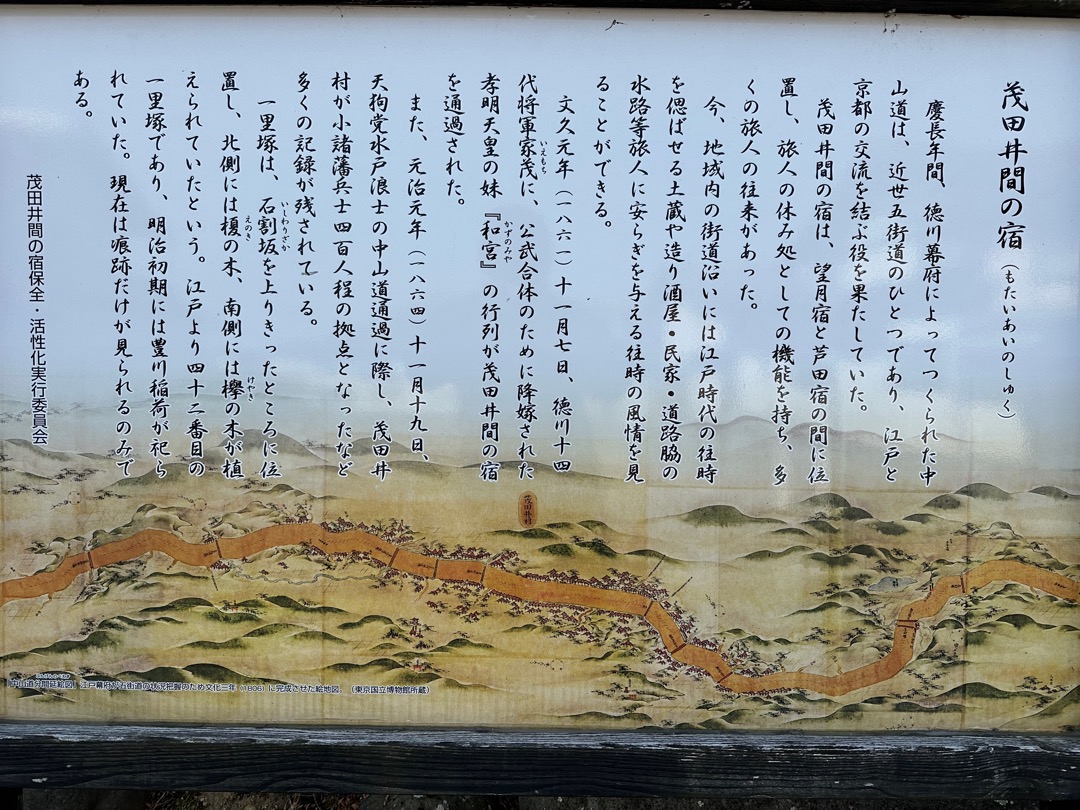 茂田井間の宿（もたいあいのしゅく）
慶長年間、徳川幕府によってつくられた中
山道は、近世五街道のひとつであり、江戸と
京都の交流を結ぶ役を果たしていた。
茂田井間の宿は、望月宿と芦田宿の間に位
置し、旅人の休み処としての機能を持ち、多
くの旅人の往来があった。
今、地域内の街道沿いには江戸時代の往時
を偲ばせる土蔵や造り酒屋・民家・道路脇の
水路等旅人に安らぎを与える往時の風情を見
ることができる。
文久元年（一八六一）十一月七日、徳川十四
代将軍家茂に、公武合体のために降嫁された
孝明天皇の妹『和宮』の行列が茂田井間の宿
を通過された。
また、元治元年（一八六四）十一月十九日、
天狗党水戸浪士の中山道通過に際し、茂田井
村が小諸藩兵士四百人程の拠点となったなど
多くの記録が残されている。
一里塚は、石割坂を上りきったところに位
置し、北側には榎の木、南側には欅の木が植
えられていたという。江戸より四十二番目の
一里塚であり、明治初期には豊川稲荷が祀ら
れていた。現在は痕跡だけが見られるのみで
ある。
茂田井間の宿保全・活性化実行委員会
いえもち
かずのみや
いしわりざか
えのき
けやき
茂田井村
中山道分間延絵図　江戸幕府が五街道の状況把握のため文化三年（1806）に完成させた絵地図。（東京国立博物館所蔵）